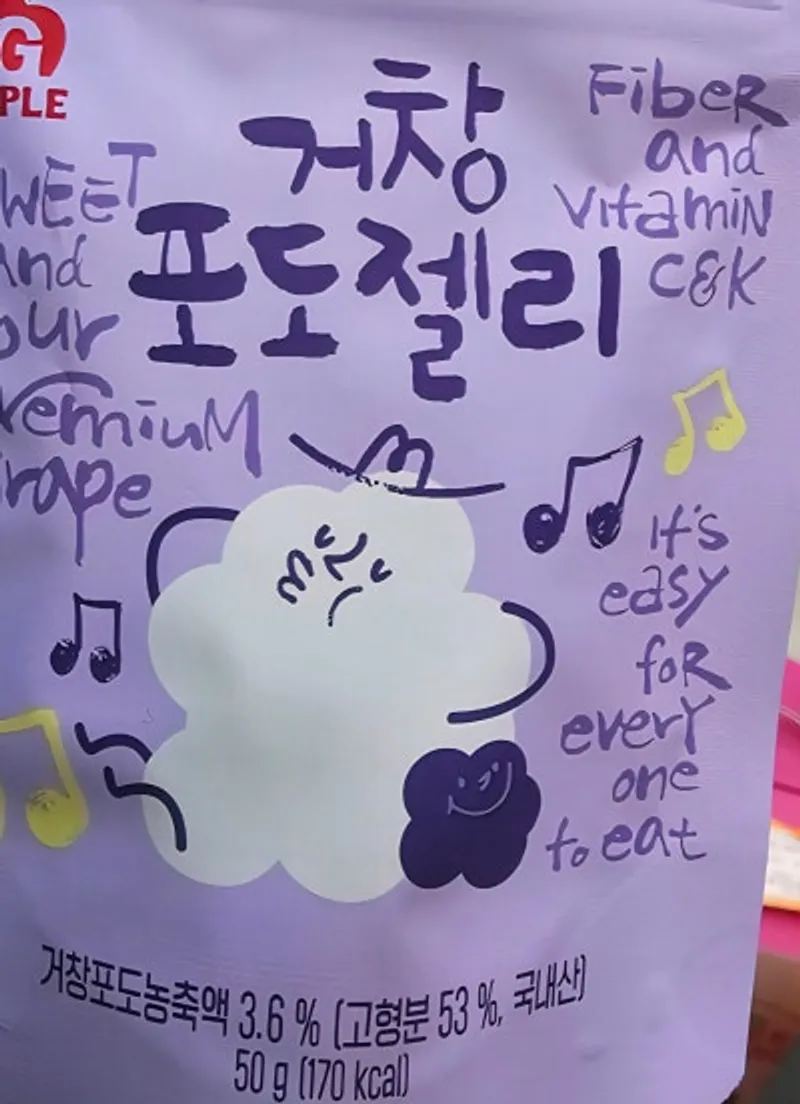 G
PLE
거창
포도젤리
WEET
and
our
remiuM
rape
FibeR
and
VitamiN
C&K
It's
easy
foR
everY
one
to eat
거창포도농축액 3.6 % (고형분 53 %, 국내산)
50 g (170 kcal)